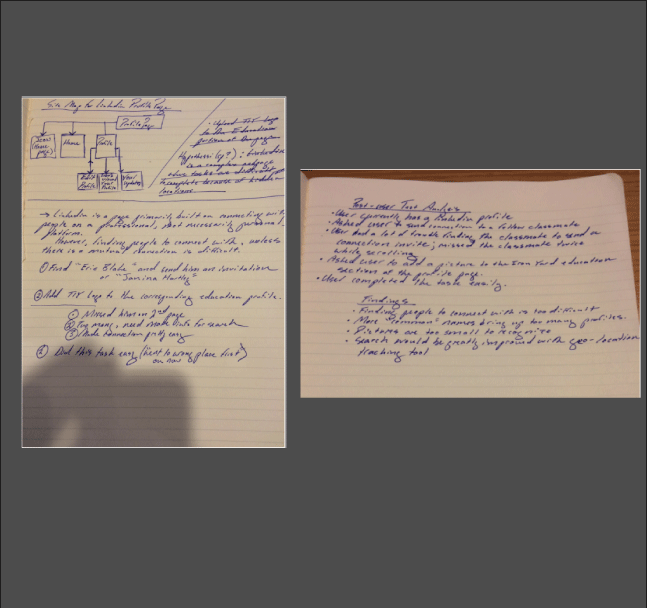 Site Map for LinkedIn Profile Page
Profile Page
Home
Profile
Edit Profile
Upload TIY Logo
to the Education
portion of the page
Hypothesis
is a complex
→ LinkedIn is a page primarily built on connecting with
people on a professional, not necessarily personal,
platform.
However, finding people to connect with, unless
there is a mutual connection is difficult.
① Find "Eric Blake" and send him an invitation
or
② Add TIY logo to the corresponding education profile.
① Missed him on 2nd page
② Too many, need more info for search
③ Made connection pretty easy
② Did this task easy (went to wrong place first)
Post-User Test Analysis
• User currently has a LinkedIn profile
• Asked user to send connection to a fellow classmate
• User had a lot of trouble finding the classmate to send a
connections invite; missed the classmate twice
while scrolling
• Asked user to add a picture to the Iron Yard education
section of the profile page.
• User completed the task easily.
Findings
• Finding people to connect with is too difficult
• More "common" names bring up too many profiles.
• Pictures are too small to recognize
• Search would be greatly improved with geo-location
tracking tool